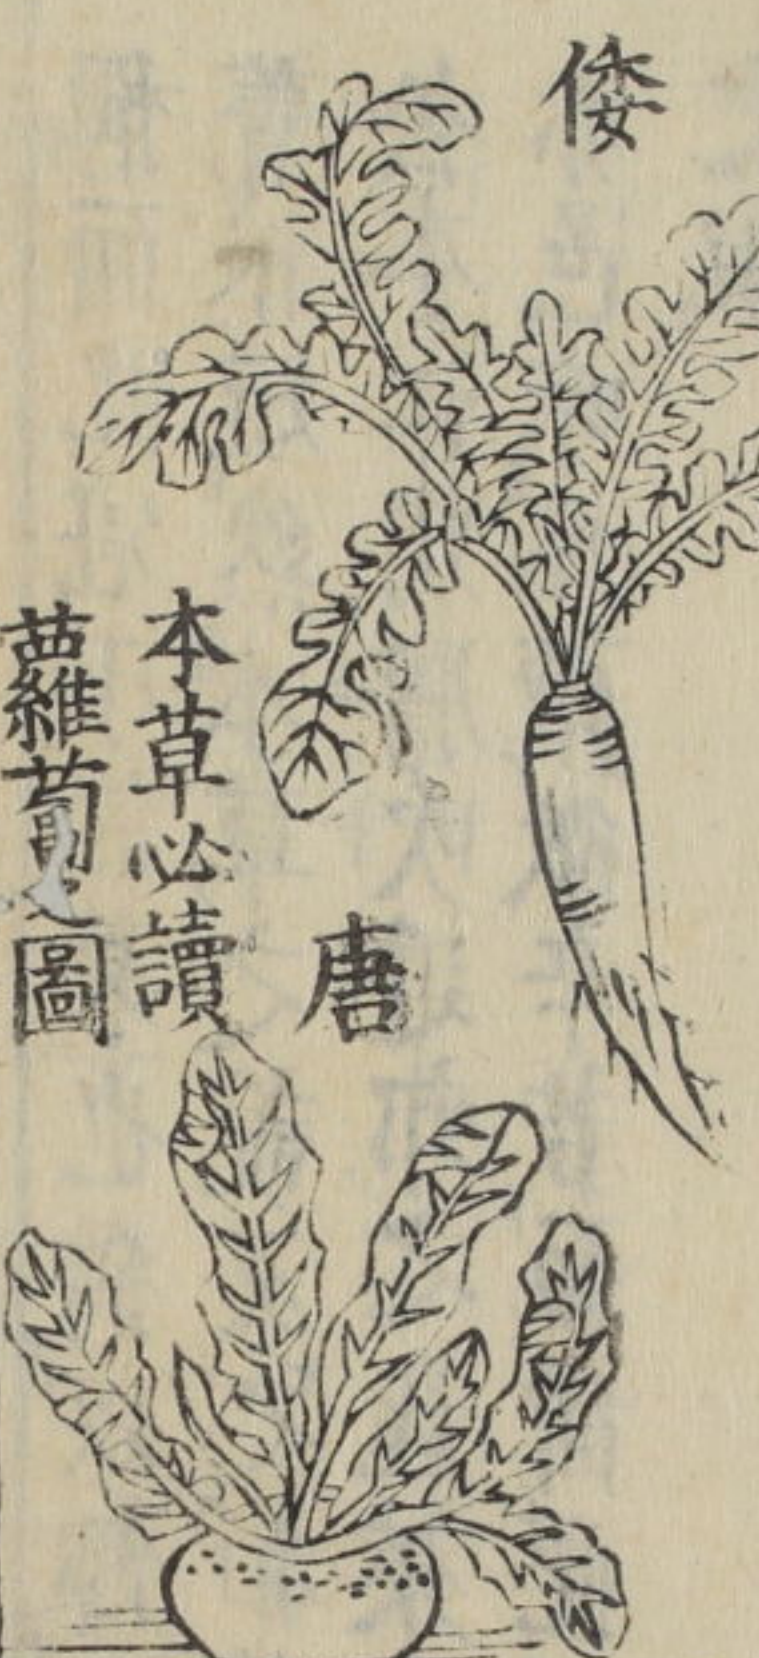 倭
唐
本草必讀
蘿蔔之圖